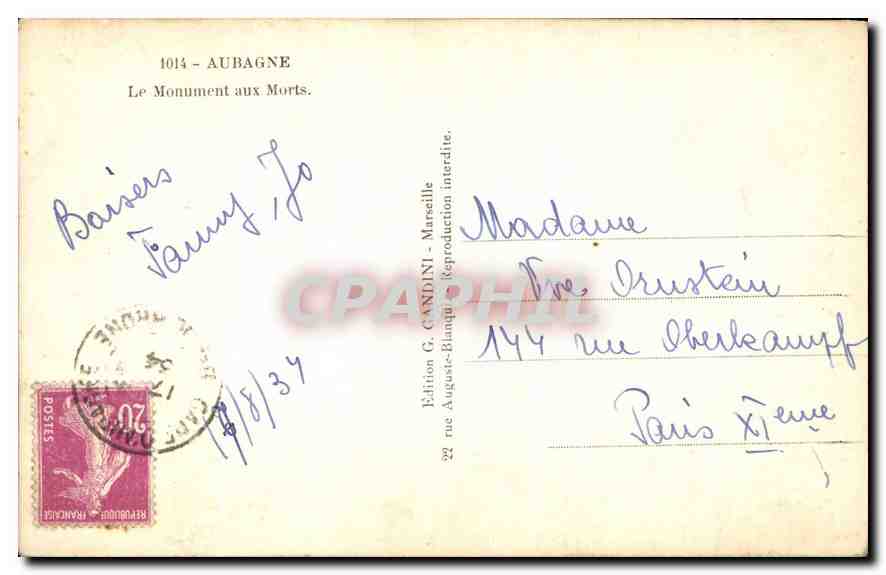 1014 - AUBAGNE
Le Monument aux Morts.
Baisers
Fanny, Jo
17/8/34
Edition G. GANDINI - Marseille
22 rue Auguste-Blanqui - Reproduction interdite.
Madame
Vve Ornstein
144 rue Oberkampf
Paris XIeme
CPAPHIL
20c
POSTES
REPUBLIQUE FRANÇAISE